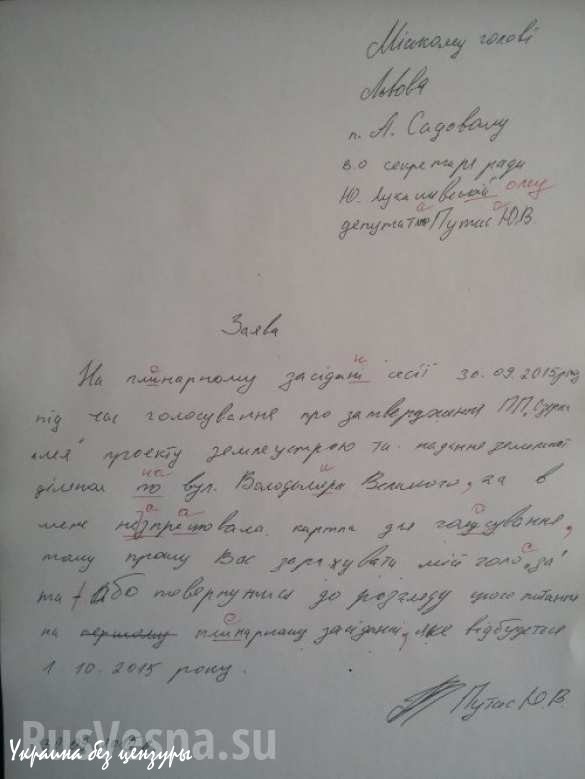 Міському голові
Львова
п. А. Садовому
в.о секретаря ради
Ю. Лукашивський ому
депутат Путас Ю.В
Заява
На плинарному засідані сесії 30.09.2015 року
під час голосування про затвердження ПП
проекту землеустрою та надання земельної
ділянки по на вул. Володимира Великого, а в
мене карта для голусування,
тому прошу Вас зарахувати мій голос "за"
та або повернутися до розгляду цього питання
на першому плинарному засіданні, яке відбудеться
1 10.2015 року.
Путас Ю.В.
RusVesna.su
Украина без цензуры